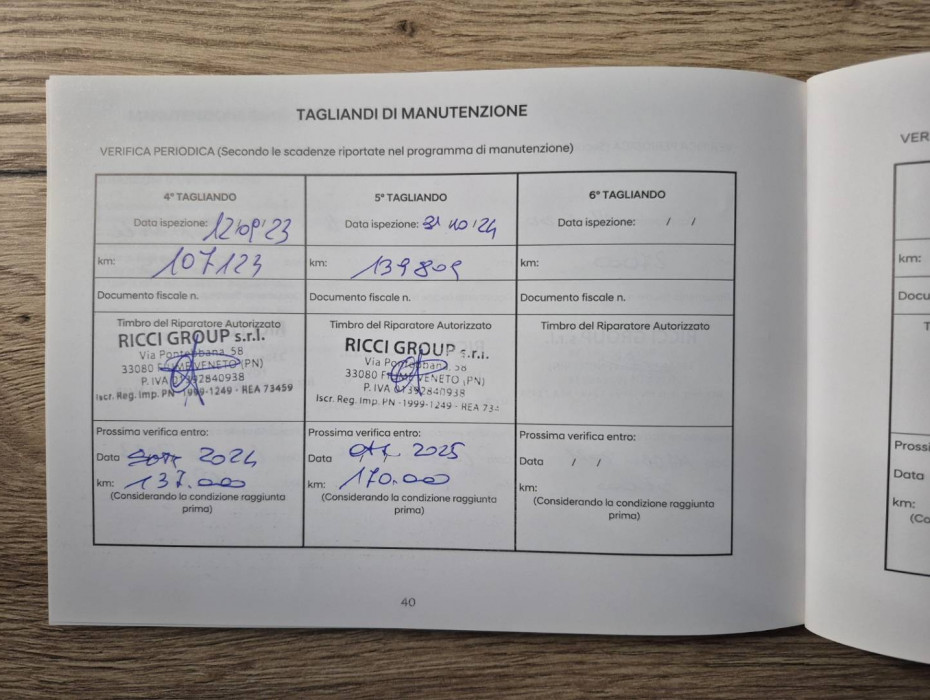 TAGLIANDI DI MANUTENZIONE
VERIFICA PERIODICA (Secondo le scadenze riportate nel programma di manutenzione)
4° TAGLIANDO
Data ispezione: 12/09/23
km: 107123
Documento fiscale n.
Timbro del Riparatore Autorizzato
RICCI GROUP s.r.l.
Via Pontebbana, 58
33080 FIUME VENETO (PN)
P. IVA 01392840938
Iscr. Reg. Imp. PN -1999-1249 - REA 73459
Prossima verifica entro:
Data Sett 2024
km: 137.000
(Considerando la condizione raggiunta
prima)
5° TAGLIANDO
Data ispezione: 31 10 '24
km: 139809
Documento fiscale n.
Timbro del Riparatore Autorizzato
RICCI GROUP s.r.l.
Via Pontebbana, 58
33080 FIUME VENETO (PN)
P. IVA 01392840938
Iscr. Reg. Imp. PN -1999-1249 - REA 734
Prossima verifica entro:
Data Ott. 2025
km: 170.000
(Considerando la condizione raggiunta
prima)
6° TAGLIANDO
Data ispezione: / /
km:
Documento fiscale n.
Timbro del Riparatore Autorizzato
Prossima verifica entro:
Data / /
km:
(Considerando la condizione raggiunta
prima)
40
VER
km:
Docu
T
Prossi
Data
km:
(Co